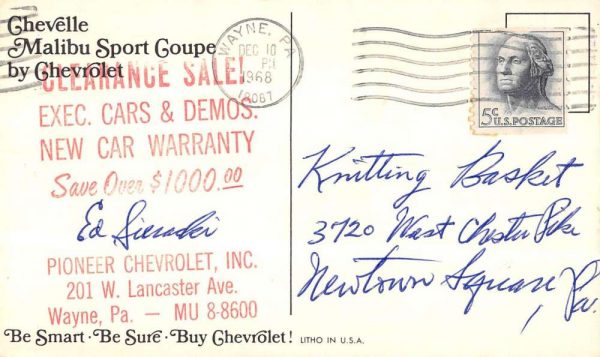 Chevelle
Malibu Sport Coupe
by Chevrolet
CLEARANCE SALE!
EXEC. CARS & DEMOS.
NEW CAR WARRANTY
Save Over $1000.00
Ed Sieraski
PIONEER CHEVROLET, INC.
201 W. Lancaster Ave.
Wayne, Pa. — MU 8-8600
Be Smart · Be Sure · Buy Chevrolet! LITHO IN U.S.A.
WAYNE, PA
DEC 10
PM
1968
19087
5c U.S. POSTAGE
Knitting Basket
3720 West Chester Pike
Newtown Square, Pa.